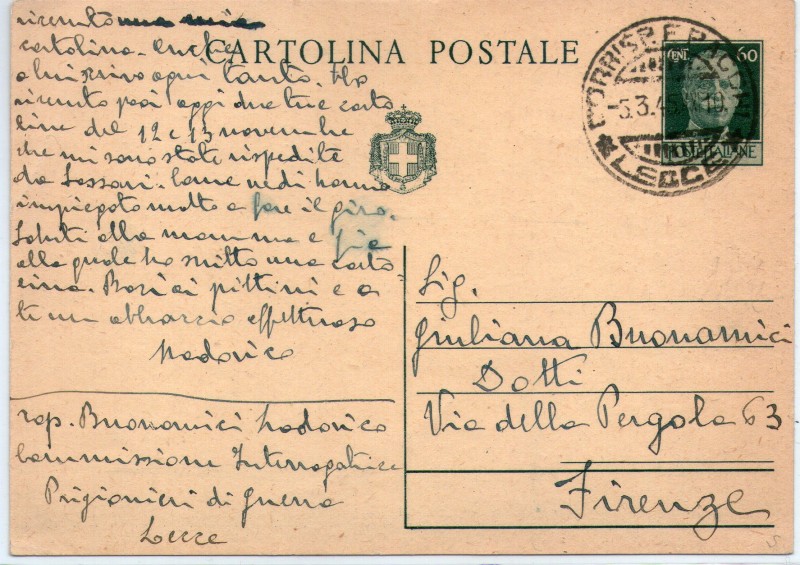 ricevuto una mia
cartolina. Anche
a lui scrivo ogni tanto. Ho
ricevuto poi oggi due tue carto
line del 12 e 13 novembre
che mi sono state rispedite
da Sassari. Come vedi hanno
impiegato molto a fare il giro.
Saluti alla mamma e zia
alla quale ho scritto una carto
lina. Baci ai pittini e a
te un abbraccio affettuoso
Lodovico
rap. Buonamici Lodovico
Commissione Interrogatrice
Prigionieri di guerra
Lecce
CARTOLINA POSTALE
CENT. 60
POSTE ITALIANE
CORRISP. E PACCHI
-5.3.45
LECCE
Sig.
Giuliana Buonamici
Dotti
Via della Pergola 63
Firenze